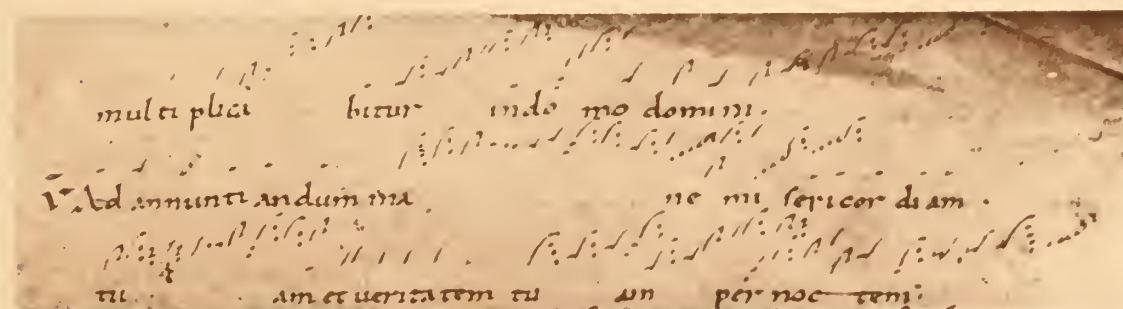 multiplici bitur indo mo domini.
V. Ad annunti andum ma ne mi sericor diam.
tu am et ueritatem tu am per noc tem.